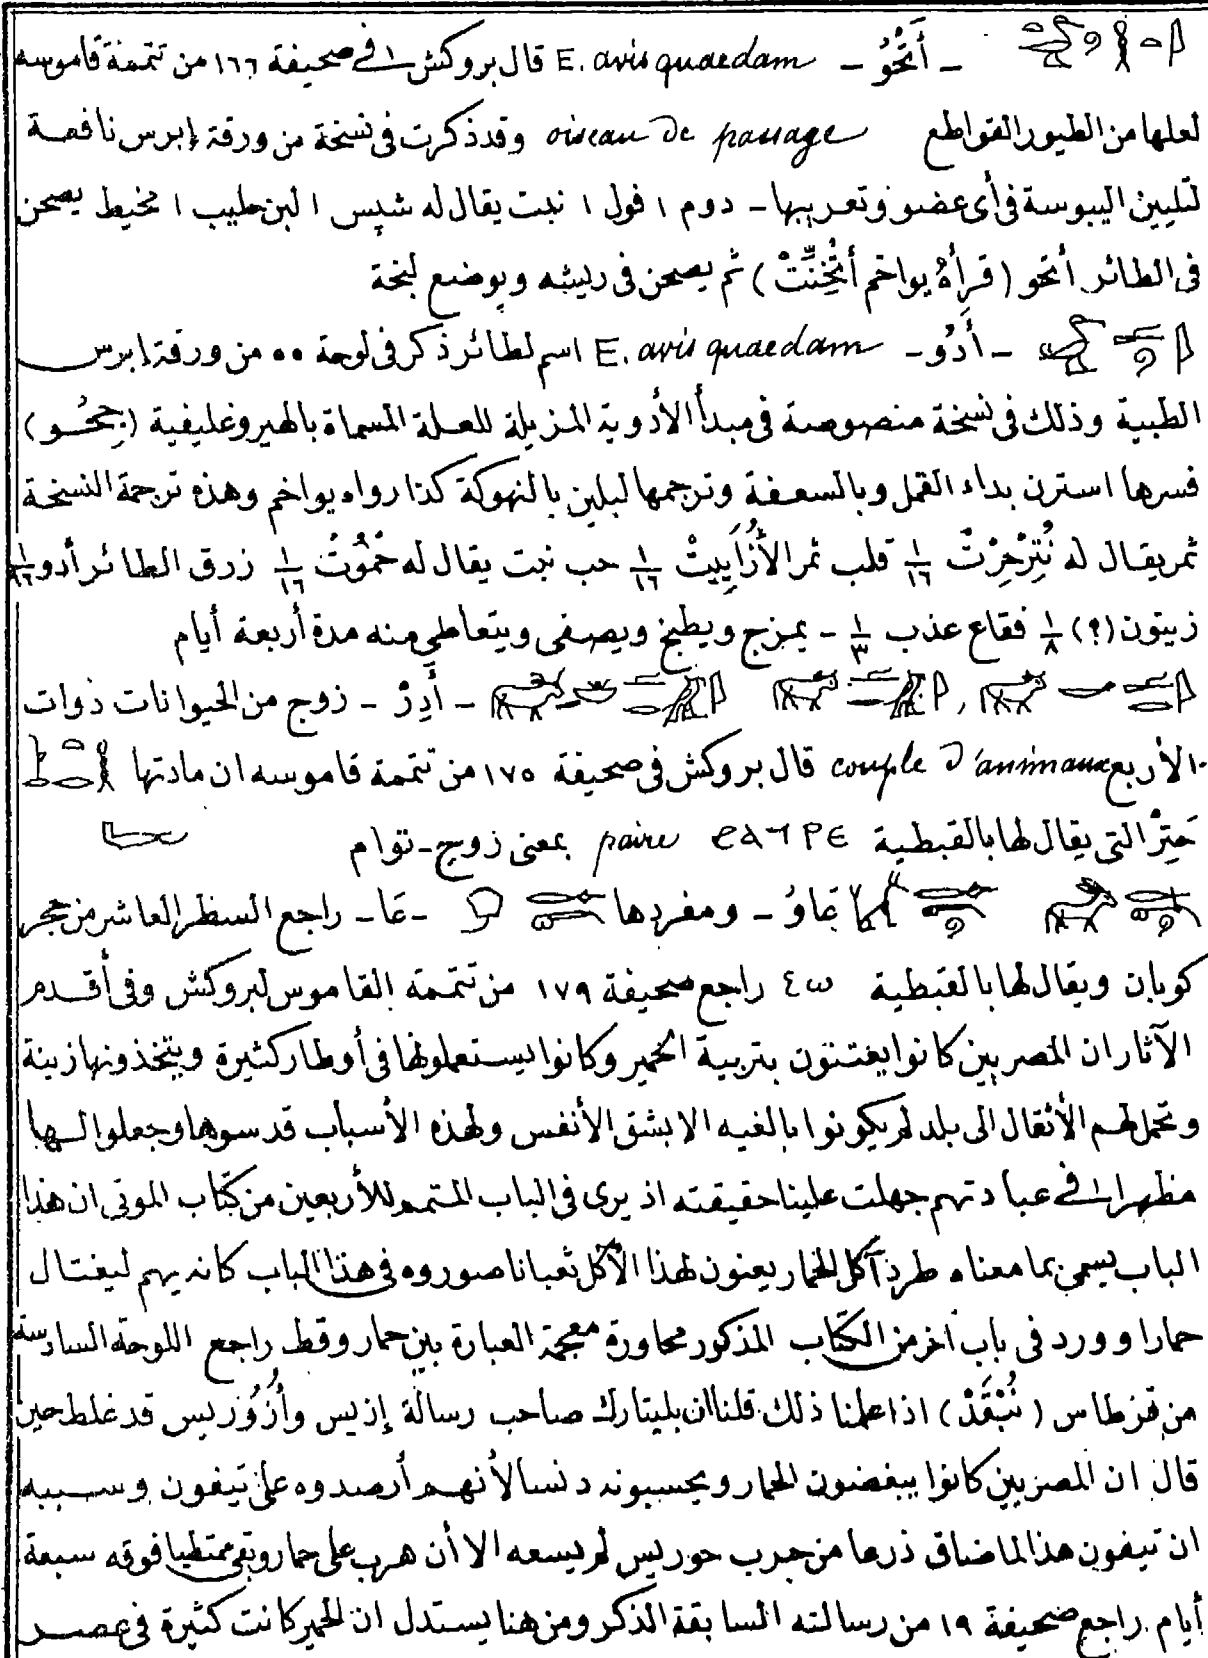 - أَتْخُو - E. avis quaedam قال بروكش فى صحيفة ١٦٦ من تتمة قاموسه
لعلها من الطيور القواطع oiseau de passage وقد ذكرت فى نسخة من ورقة إبرس نافعة
لتليين اليبوسة فى أى عضو وتعريبها - دوم ١ فول ١ نبت يقال له شپس ١ لبن حليب ١ مخيط يصحن
فى الطائر أتخو (قرأهُ يواخم أَتْخِنِّتْ) ثم يصحن فى ريشه ويوضع لبخة
- أَدُو - E. avis quaedam اسم لطائر ذكر فى لوحة ٥٥ من ورقة إبرس
الطبية وذلك فى نسخة منصوصة فى مبدأ الأدوية المزيلة للعلة المسماة بالهيروغليفية
فسرها استرن بداء القمل وبالسعفة وترجمها لبلين بالنهوكة كذا رواه يواخم وهذه ترجمة النسخة
ثمر يقال له ١/١٦ قلب ثمر ١/١٦ حب نبت يقال له ١/١٦ زرق الطائر أدو ١/١٦
زيتون (؟) ١/٨ فقاع عذب ١/٣ - يمزج ويطبخ ويصفى ويتعاطى منه مدة أربعة أيام
- أَدِرْ - زوج من الحيوانات ذوات
الأربع couple d'animaux قال بروكش فى صحيفة ١٧٥ من تتمة قاموسه ان مادتها
حَتِرْ التى يقال لها بالقبطية ϩⲁⲧⲣⲉ paire بمعنى زوج - توام
عَاوُ - ومفردها - عَا - راجع السطر العاشر من حجر
كوبان ويقال لها بالقبطية ⲉⲱ راجع صحيفة ١٧٩ من تتمة القاموس لبروكش وفى أقدم
الآثار ان المصريين كانوا يعتنون بتربية الحمير وكانوا يستعملونها فى أوطار كثيرة ويتخذونها زينة
وتحمل لهم الأثقال الى بلد لم يكونوا بالغيه الا بشق الأنفس ولهذه الأسباب قدسوها وجعلوا لها
مظهرا فى عبادتهم جهلت علينا حقيقته اذ يرى فى الباب المتمم للأربعين من كتاب الموتى ان هذا
الباب يسمى بما معناه طرد آكل الحمار يعنون لهذا الآكل ثعبانا صوروه فى هذا الباب كانه يهم ليغتال
حمارا وورد فى باب آخر من الكتاب المذكور محاورة معجمة العبارة بين حمار وقط راجع اللوحة السادسة
من قرطاس (نُبْقَدْ) اذا علمنا ذلك قلنا ان بليتارك صاحب رسالة إزيس وأُزُوريس قد غلط حين
قال ان المصريين كانوا يبغضون الحمار ويحسبونه دنسا لأنهم أرصدوه على تيفون وسببه
ان تيفون هذا لما ضاق ذرعا من حرب حوريس لم يسعه الا أن هرب على حمار وبقى ممتطيا فوقه سبعة
أيام راجع صحيفة ١٩ من رسالته السابقة الذكر ومن هنا يستدل ان الحمير كانت كثيرة فى عصر